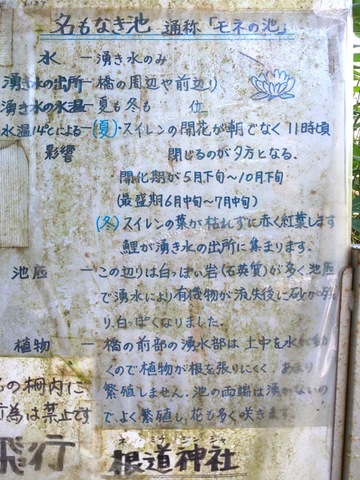 名もなき池 通称「モネの池」
水 ー 湧き水のみ
湧き水の出所 ー 橋の周辺や前辺り
湧き水の水温 ー 夏も冬も 位
水温14℃による ー (夏)・スイレンの開花が朝でなく11時頃
影響 閉じるのが夕方となる。
・開化期が5月下旬〜10月下旬
(最盛期6月中旬〜7月中旬)
(冬)・スイレンの葉が枯れずに赤く紅葉します
鯉が湧き水の出所に集まります。
池底 ー この辺りは白っぽい岩(石英質)が多く、池底
で湧水により有機物が流失後に砂が残
り白っぽくなりました。
植物 ー 橋の前部の湧水部は土中を水が
くので植物が根を張りにくく、あまり
繁殖しません。池の両端は湧かないの
でよく繁殖し、花も多く咲きます。
の柵内に
行為は禁止です
飛行
根道神社